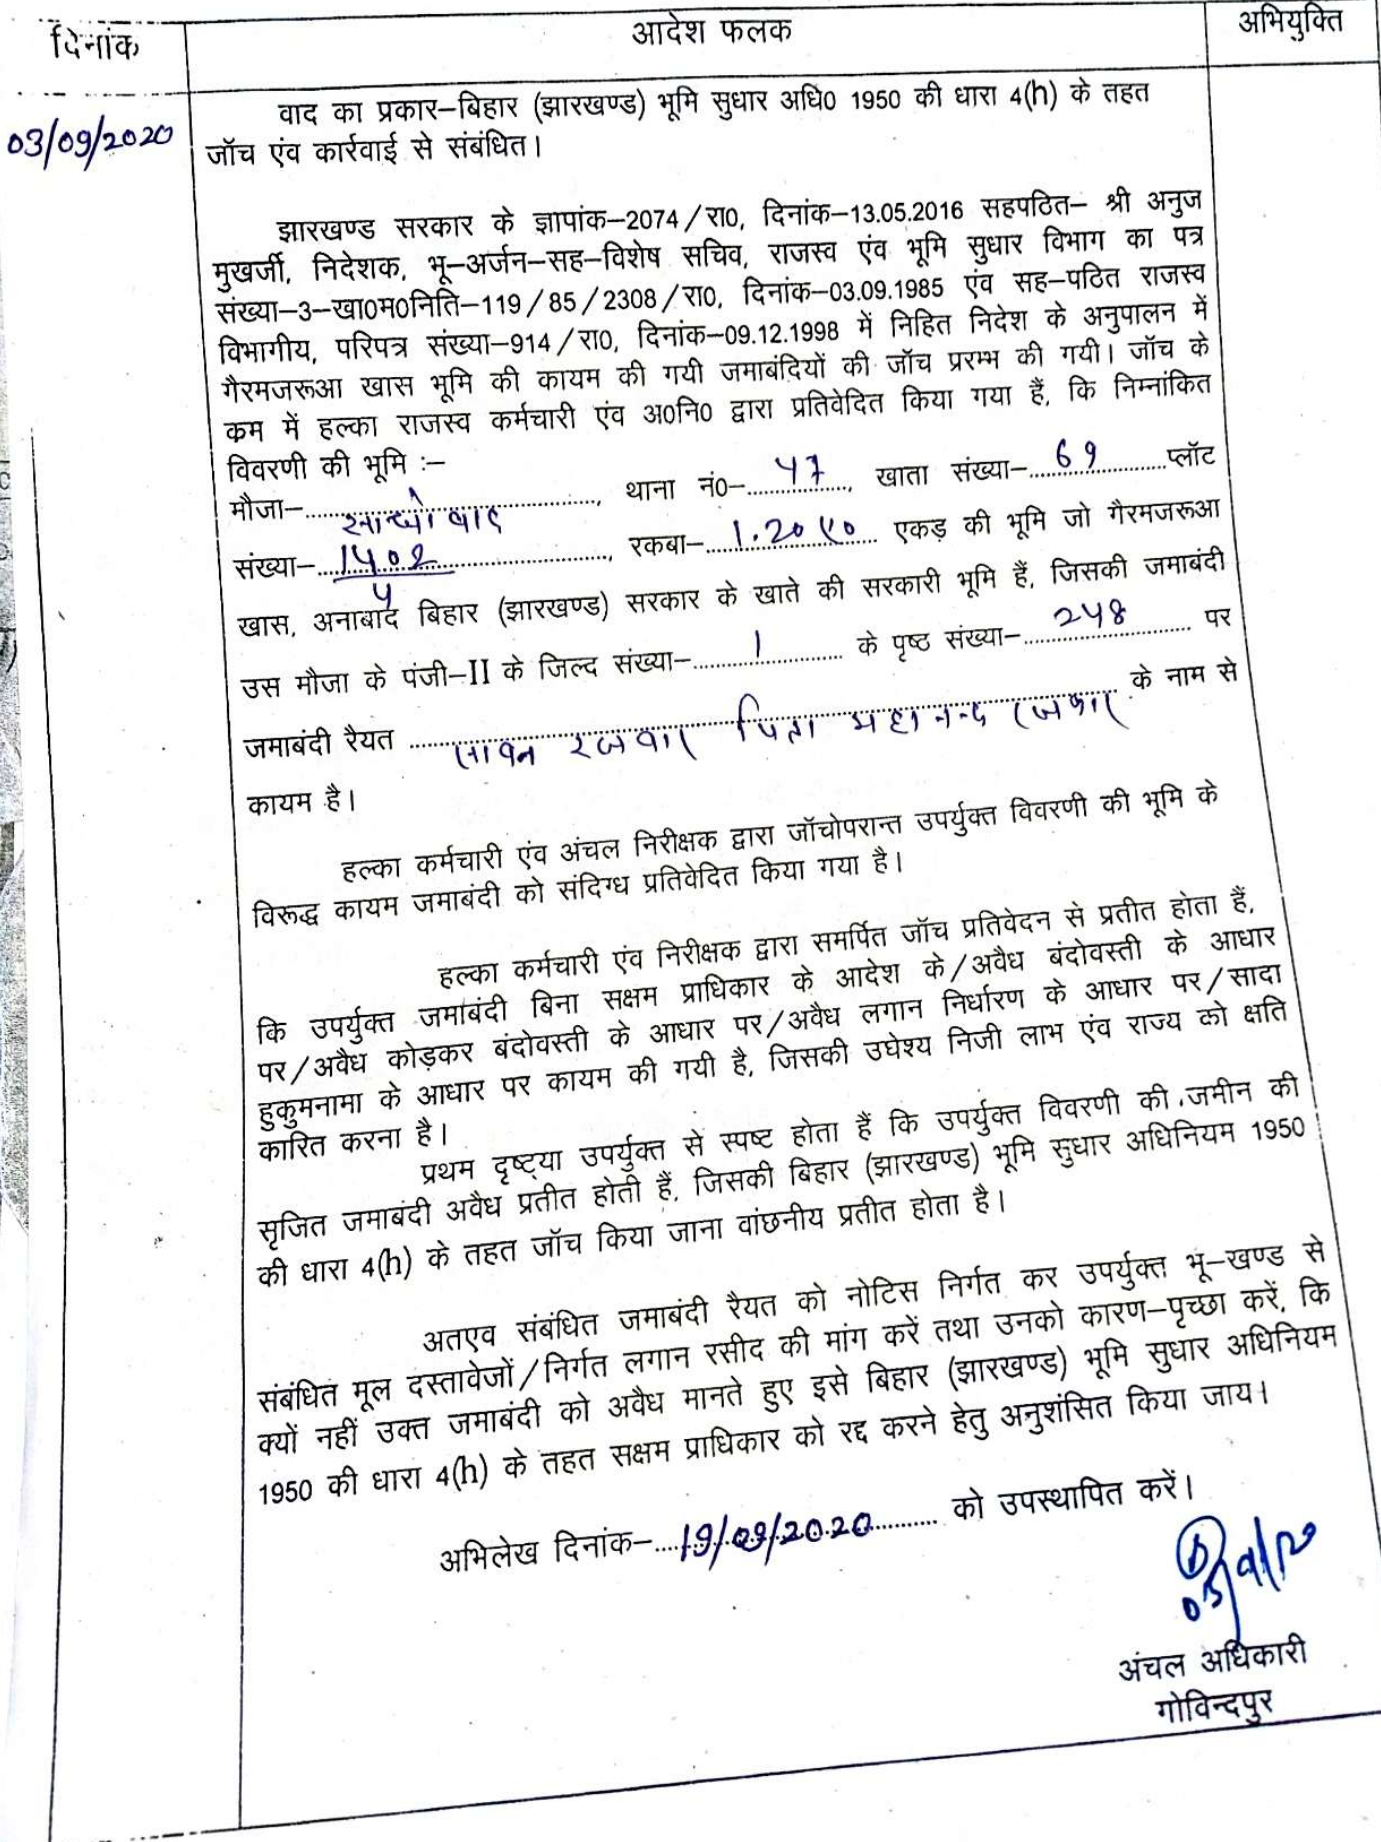 दिनांक आदेश फलक अभियुक्ति
03/09/2020
वाद का प्रकार–बिहार (झारखण्ड) भूमि सुधार अधि0 1950 की धारा 4(h) के तहत
जॉच एंव कार्रवाई से संबंधित।
झारखण्ड सरकार के ज्ञापांक–2074/रा0, दिनांक–13.05.2016 सहपठित– श्री अनुज
मुखर्जी, निदेशक, भू–अर्जन–सह–विशेष सचिव, राजस्व एंव भूमि सुधार विभाग का पत्र
संख्या–3–खा0म0निति–119/85/2308/रा0, दिनांक–03.09.1985 एंव सह–पठित राजस्व
विभागीय, परिपत्र संख्या–914/रा0, दिनांक–09.12.1998 में निहित निदेश के अनुपालन में
गैरमजरूआ खास भूमि की कायम की गयी जमाबंदियों की जॉच प्ररम्भ की गयी। जॉच के
कम में हल्का राजस्व कर्मचारी एंव अ0नि0 द्वारा प्रतिवेदित किया गया हैं, कि निम्नांकित
विवरणी की भूमि :–
मौजा–.........., थाना नं0–47, खाता संख्या–69 प्लॉट
संख्या–1402/5, रकबा–1.20 ए0 एकड़ की भूमि जो गैरमजरूआ
खास, अनाबाद बिहार (झारखण्ड) सरकार के खाते की सरकारी भूमि हैं, जिसकी जमाबंदी
उस मौजा के पंजी–II के जिल्द संख्या–1 के पृष्ठ संख्या–248 पर
जमाबंदी रैयत रजवार पिता महानन्द रजवार के नाम से
कायम है।
हल्का कर्मचारी एंव अंचल निरीक्षक द्वारा जॉचोपरान्त उपर्युक्त विवरणी की भूमि के
विरूद्ध कायम जमाबंदी को संदिग्ध प्रतिवेदित किया गया है।
हल्का कर्मचारी एंव निरीक्षक द्वारा समर्पित जॉच प्रतिवेदन से प्रतीत होता हैं,
कि उपर्युक्त जमाबंदी बिना सक्षम प्राधिकार के आदेश के/अवैध बंदोवस्ती के आधार
पर/अवैध कोड़कर बंदोवस्ती के आधार पर/अवैध लगान निर्धारण के आधार पर/सादा
हुकुमनामा के आधार पर कायम की गयी है, जिसकी उघेश्य निजी लाभ एंव राज्य को क्षति
कारित करना है।
प्रथम दृष्ट्या उपर्युक्त से स्पष्ट होता हैं कि उपर्युक्त विवरणी की जमीन की
सृजित जमाबंदी अवैध प्रतीत होती हैं, जिसकी बिहार (झारखण्ड) भूमि सुधार अधिनियम 1950
की धारा 4(h) के तहत जॉच किया जाना वांछनीय प्रतीत होता है।
अतएव संबंधित जमाबंदी रैयत को नोटिस निर्गत कर उपर्युक्त भू–खण्ड से
संबंधित मूल दस्तावेजों/निर्गत लगान रसीद की मांग करें तथा उनको कारण–पृच्छा करें, कि
क्यों नहीं उक्त जमाबंदी को अवैध मानते हुए इसे बिहार (झारखण्ड) भूमि सुधार अधिनियम
1950 की धारा 4(h) के तहत सक्षम प्राधिकार को रद्द करने हेतु अनुशंसित किया जाय।
अभिलेख दिनांक–19/09/2020 को उपस्थापित करें।
अंचल अधिकारी
गोविन्दपुर